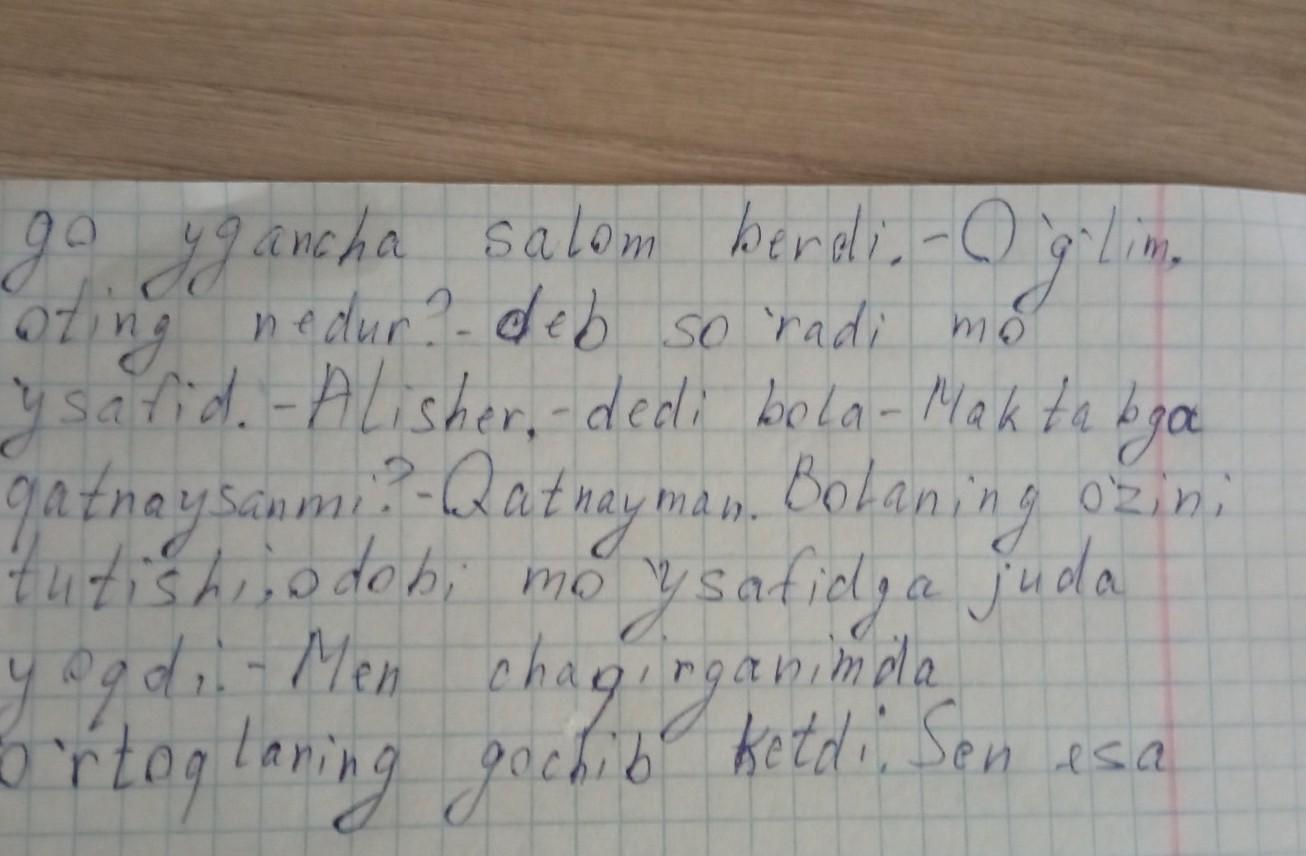 go ygancha salom berdi.-O'g'lim,
oting nedur?-deb so'radi mo
'ysafid.-Alisher,-dedi bola-Maktabga
qatnaysanmi?-Qatnayman. Bolaning o'zini
tutishi, odobi mo'ysafidga juda
yoqdi.-Men chaqirganimda
o'rtoqlaring qochib ketdi. Sen esa